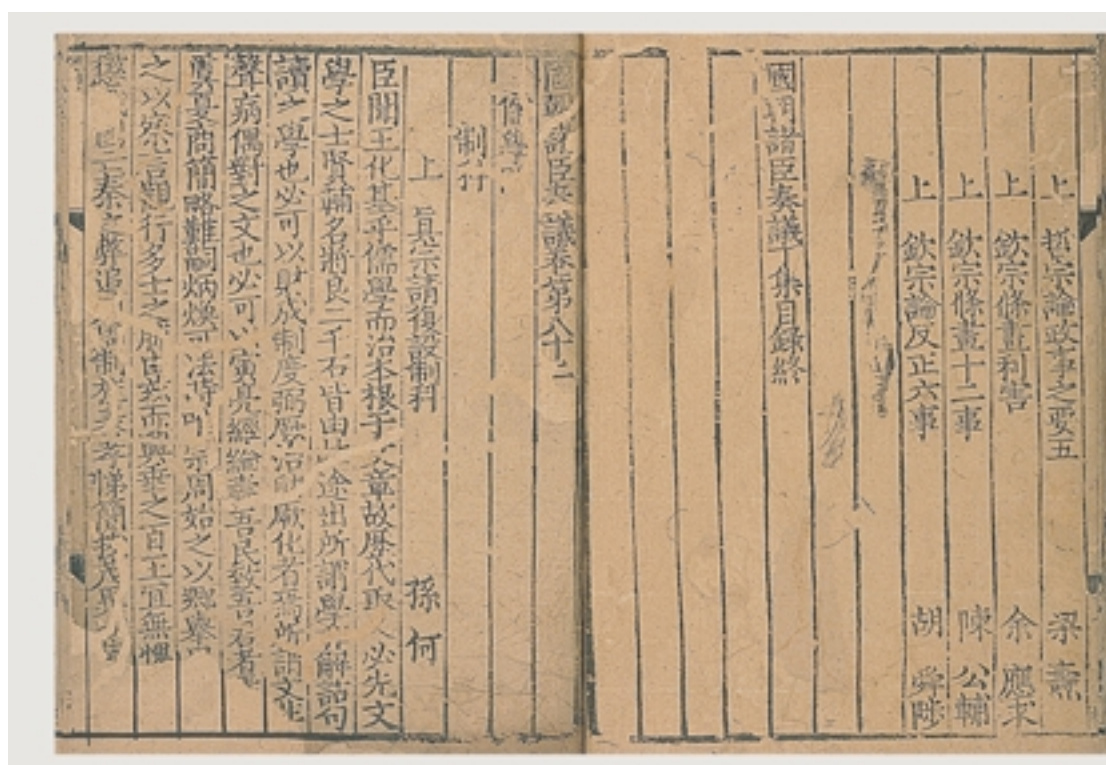 上 哲宗論政事之要五 梁燾
上 欽宗條畫利害 余應求
上 欽宗條畫十二事 陳公輔
上 欽宗論反正六事 胡舜陟
國朝諸臣奏議丁集目録終
國朝諸臣奏議卷第八十二
儒學
制科
上 真宗請復設制科 孫何
臣聞王化基乎儒學而治本根于文章故歷代取人必先文
學之士賢輔名將良二千石皆由 途出所謂學 解詁句
讀之學也必可以財成制度弼 厥化者焉所謂文非
聲病偶對之文也必可以寅亮經綸 吾民致吾君者
虞夏商簡略難嗣炳煥可法 周始之以鄉舉
之以 言 行多士之 百工宜無
秦之弊追 孝悌